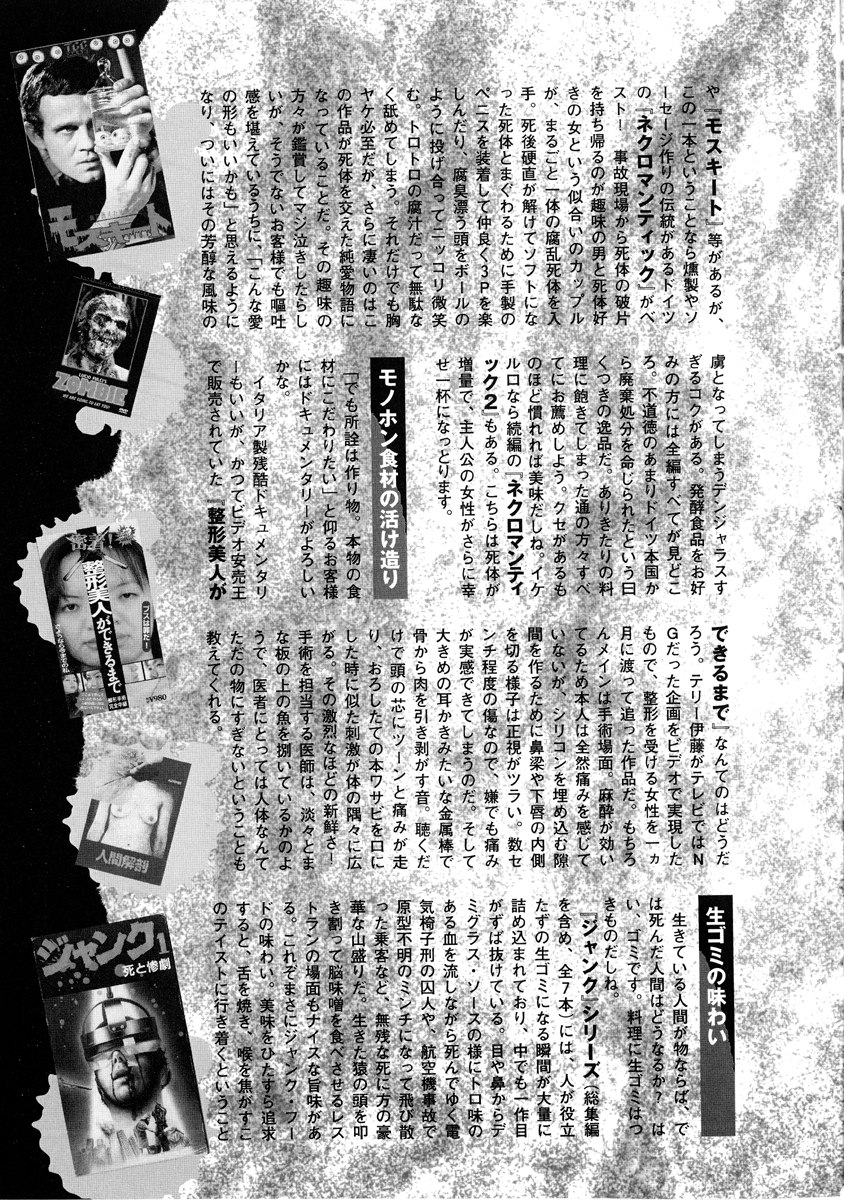 や『モスキート』等があるが、
この一本ということなら燻製やソ
ーセージ作りの伝統があるドイツ
の『ネクロマンティック』がベ
スト！　事故現場から死体の破片
を持ち帰るのが趣味の男と死体好
きの女という似合いのカップル
が、まるごと一体の腐乱死体を入
手。死後硬直が解けてソフトにな
った死体とまぐわるために手製の
ペニスを装着して仲良く3Pを楽
しんだり、腐臭漂う頭をボールの
ように投げ合ってニッコリ微笑
む。トロトロの腐汁だって無駄な
く舐めてしまう。それだけでも胸
ヤケ必至だが、さらに凄いのはこ
の作品が死体を交えた純愛物語に
なっていることだ。その趣味の
方々が鑑賞してマジ泣きしたらし
いが、そうでないお客様でも嘔吐
感を堪えているうちに、「こんな愛
の形もいいかも」と思えるように
なり、ついにはその芳醇な風味の
虜となってしまうデンジャラスす
ぎるコクがある。発酵食品をお好
みの方には全編すべてが見どこ
ろ。不道徳のあまりドイツ本国か
ら廃棄処分を命じられたという曰
くつきの逸品だ。ありきたりの料
理に飽きてしまった通の方々すべ
てにお薦めしよう。クセがあるも
のほど慣れれば美味だしね。イケ
ルロなら続編の『ネクロマンティ
ック2』もある。こちらは死体が
増量で、主人公の女性がさらに幸
せ一杯になっとります。
モノホン食材の活け造り
「でも所詮は作り物。本物の食
材にこだわりたい」と仰るお客様
にはドキュメンタリーがよろしい
かな。
イタリア製残酷ドキュメンタリ
ーもいいが、かつてビデオ安売王
で販売されていた『整形美人が
できるまで』なんてのはどうだ
ろう。テリー伊藤がテレビではN
Gだった企画をビデオで実現した
もので、整形を受ける女性を一ヵ
月に渡って追った作品だ。もちろ
んメインは手術場面。麻酔が効い
てるため本人は全然痛みを感じて
いないが、シリコンを埋め込む隙
間を作るために鼻梁や下唇の内側
を切る様子は正視がツラい。数セ
ンチ程度の傷なので、嫌でも痛み
が実感できてしまうのだ。そして
大きめの耳かきみたいな金属棒で
骨から肉を引き剥がす音。聴くだ
けで頭の芯にツーンと痛みが走
り、おろしたての本ワサビを口に
した時に似た刺激が体の隅々に広
がる。その激烈なほどの新鮮さ！
手術を担当する医師は、淡々とま
な板の上の魚を捌いているかのよ
うで、医者にとっては人体なんて
ただの物にすぎないということも
教えてくれる。
生ゴミの味わい
生きている人間が物ならば、で
は死んだ人間はどうなるか？　は
い、ゴミです。料理に生ゴミはつ
きものだしね。
『ジャンク』シリーズ（総集編
を含め、全7本）には、人が役立
たずの生ゴミになる瞬間が大量に
詰め込まれており、中でも一作目
がずば抜けている。目や鼻からデ
ミグラス・ソースの様にトロ味の
ある血を流しながら死んでゆく電
気椅子刑の囚人や、航空機事故で
原型不明のミンチになって飛び散
った乗客など、無残な死に方の豪
華な山盛りだ。生きた猿の頭を叩
き割って脳味噌を食べさせるレス
トランの場面もナイスな旨味があ
る。これぞまさにジャンク・フー
ドの味わい。美味をひたすら追求
すると、舌を焼き、喉を焦がすこ
のテイストに行き着くということ
モスキート
ZOMBIE
WE ARE GOING TO EAT YOU!
整形美人ができるまで
ブスは罪だ！
¥980
人間解剖
ジャンク1
死と惨劇